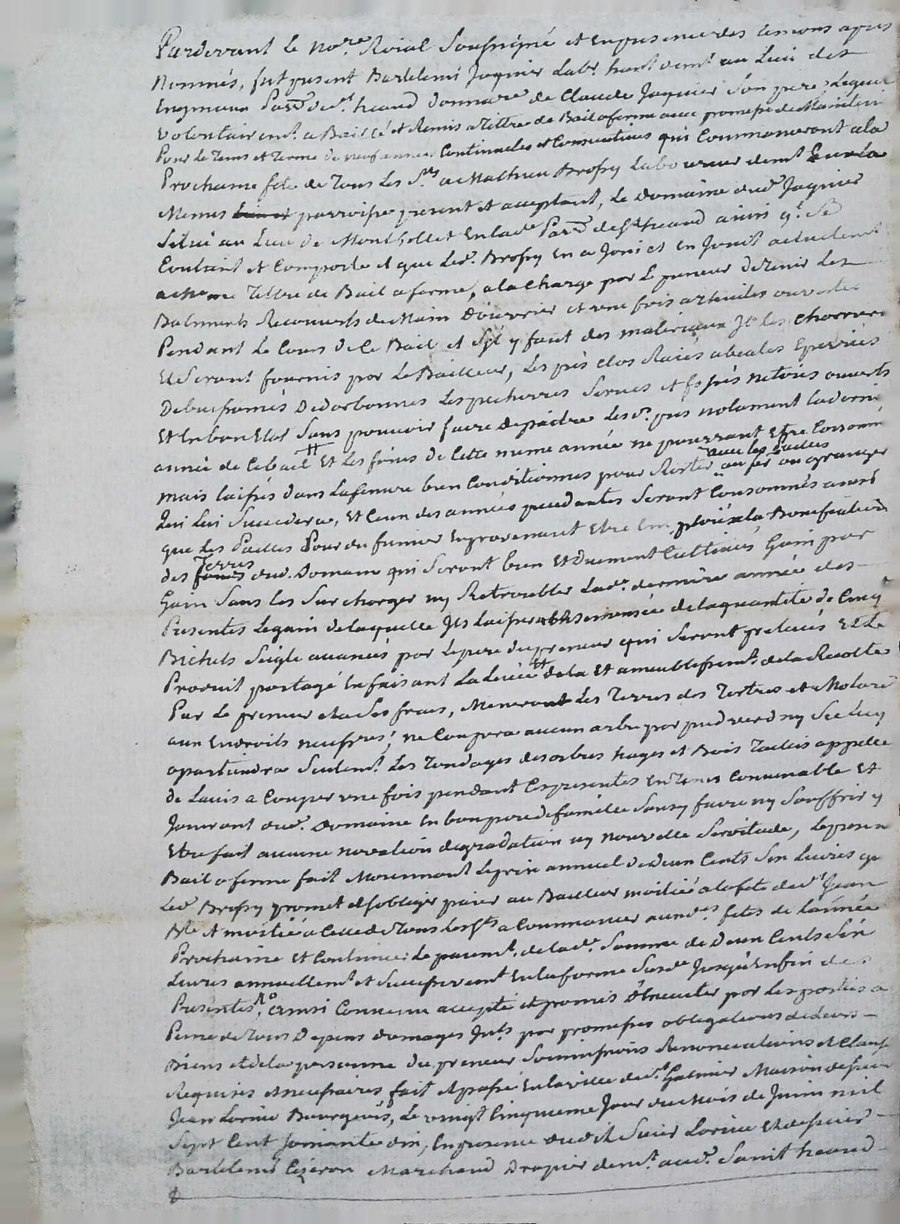 Pardevant le no.re Roial Soussigné et en presence des temoins apres
Nommés, fut present Bartelemi Jaquier Lab.r ha.nt dem.t au Lieu des
Engmeura Parr.e de S.t heand donnare de Claude Jaquier Son pere, Lequel
volontairem.t a Baillé et Remis a tittre de Bail a ferme avec promesse de Maintenir
Pour le tems et terme de neuf années Continuelles et Consecutives qui Commanceront a la
Prochaine fete de Tous les S.ts a Mathieu Brossy Laboureur dem.t Sur La
Meme parroisse present et acceptant, Le Domaine dud. Jaquier
Situé au Lieu de Monthollet En lad.e Parr.e de S.t heand ainsi q.l Se
Contient et Comporte et que Led. Brossy En a Joui et En Jouit actuelem.t
a meme Tittre de Bail a ferme, a la Charge par le preneur de tenir Les
Batiments Recouverts de Main d'ouvrier et une fois a tuiles ouvertes
Pendant Le Cours de Ce Bail et S'il y faut des materiaux Il les charrera
Et Seront fournis par Le Bailleur, Les prés clos Raiés abealés Eperriés
Debuissonnés Dedarbonnés Les pecheries Serves et fossés netoiés ouverts
Et En bon Etat Sans pouvoir faire Depaitre Les d. prés notament la derniere
année de Ce bail Et Les foins de Cette meme année ne pourront Etre Consommés
avec les pailles
mais laissés dans La feniere bien Conditionnés pour Rester au fermier ou granger
qui Lui Succedera, Et Ceux des années precedentes Seront Consommés aussi
que Les Pailles Pour du fumier En provenant Etre Emploié a la Bonification
Terres
des dud. Domaine qui Seront bien Et Duement Cultivés Gain par
Gain Sans Les Surcharger ny Retroubler Lad.e derniere année des
Presentes Le gain de laquelle Il Laissera Ensemensée de la quantité de Cinq
Bichets Seigle avancés par Le pere du preneur qui Seront prelevés Et Le
Produit partagé En faisant La Levée de la Et ameublissem.t de la Recolte
Par Le preneur et a Ses frais, Menera Les Terres des Tertres et Molard
aux Endroits necess.res, ne Coupera aucun arbre par pied verd ny Sec Luy
apartiendra Seulem.t Les Tondages des arbres hayes et Bois Taillis appellé
de Lavis a Couper une fois pendant Ces presentes En Tems Convenable Et
Jouirant dud. Domaine En bon pere de famille Sans y faire ny Souffrir y
Etre fait aucune novation degradation ny nouvelle Servitude, Le present
Bail a ferme fait Moiennant Le prix annuel de Deux Cents Dix Livres que
Led. Brossy promet et s'oblige paier au Bailleur moitié a la fete de S.t Jean
B.te Et moitié a Celle de Tous Les S.ts a Commancer aux d. fetes de L'année
Prochaine Et Continuer Le paiem.t de lad.e Somme de Deux Cents Dix
Livres annuellem.t et Successivem.t En la forme Susd.e Jusqu'a Enfin des
Presentes, ainsi Convenu accepté et promis Executer par Les parties a
Peine de Tous Depens domages Int.s par promesses obligations de Leurs
Biens et de la personne du preneur Soumissions Renonciations et Clauses
Requises et necessaires fait et passé En la ville de S.t Galmier Maison de Sieur
Jean Lorine Bourgeois, Le vingt Cinquieme Jour du Mois de Juin mil
Sept Cent soixante dix, En presence dudit Sieur Lorine Et de Sieur
Bartelemi Cizeron Marchand Drapier dem.t aud. Saint heand